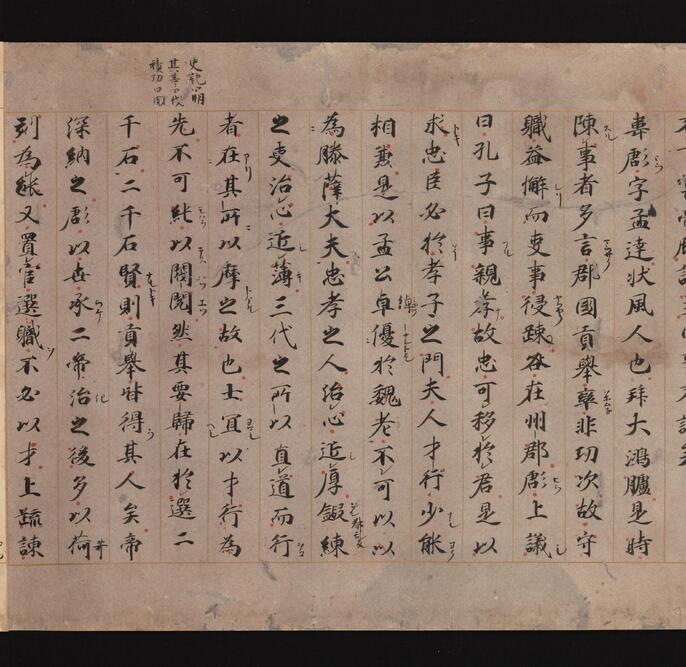 韋彪字孟達扶風人也拜大鴻臚是時
陳事者多言郡國貢舉率非功次故守
職益懈而吏事寖疎咎在州郡彪上議
曰孔子曰事親孝故忠可移於君是以
求忠臣必於孝子之門夫人才行少能
相兼是以孟公卓優於魏老不可以以
為滕薛大夫忠孝之人治心近厚鍛練
之吏治心近薄三代之所以直道而行
者在其所以摩之故也士宜以才行為
史記曰明
其等曰伐
積功曰閱
先不可純以閥閱然其要歸在於選二
千石二千石賢則貢舉皆得其人矣帝
深納之彪以世承二帝治之後多以苛
刻為能又置官選職不必以才上疏諫